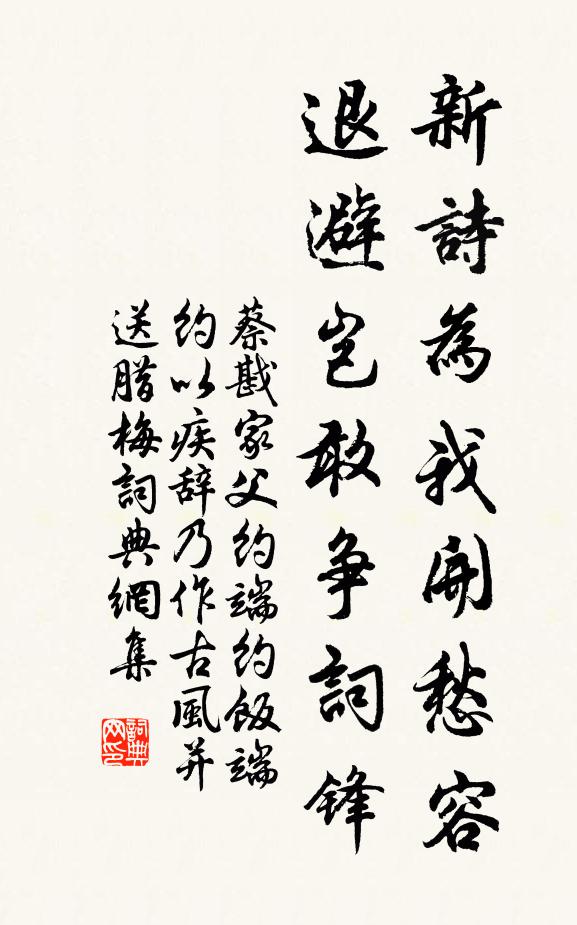 新詩為我開愁容
退避豈敢爭詞鋒
蔡戡家父約端約飯端
約以疾辞乃作古風并
送腊梅詞典網集
詞典網印